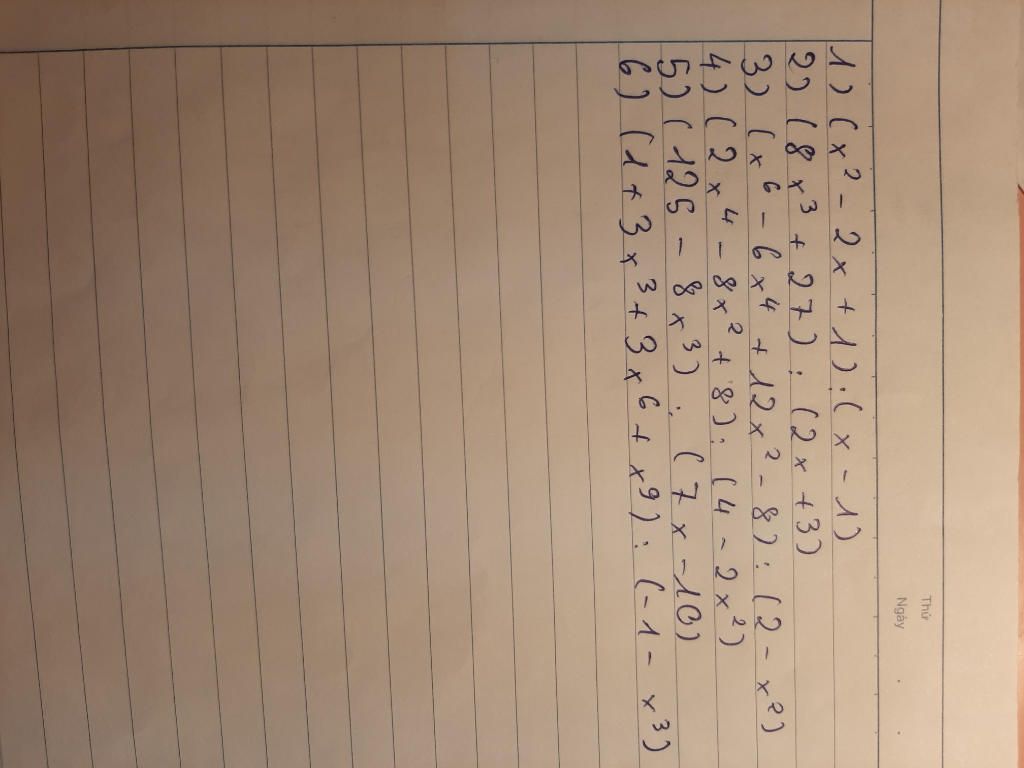 Thứ
Ngày
1) (x² - 2x + 1) : (x - 1)
2) (8x³ + 27) : (2x + 3)
3) (x⁶ - 6x⁴ + 12x² - 8) : (2 - x²)
4) (2x⁴ - 8x² + 8) : (4 - 2x²)
5) (125 - 8x³) : (7x - 10)
6) (1 + 3x³ + 3x⁶ + x⁹) : (-1 - x³)